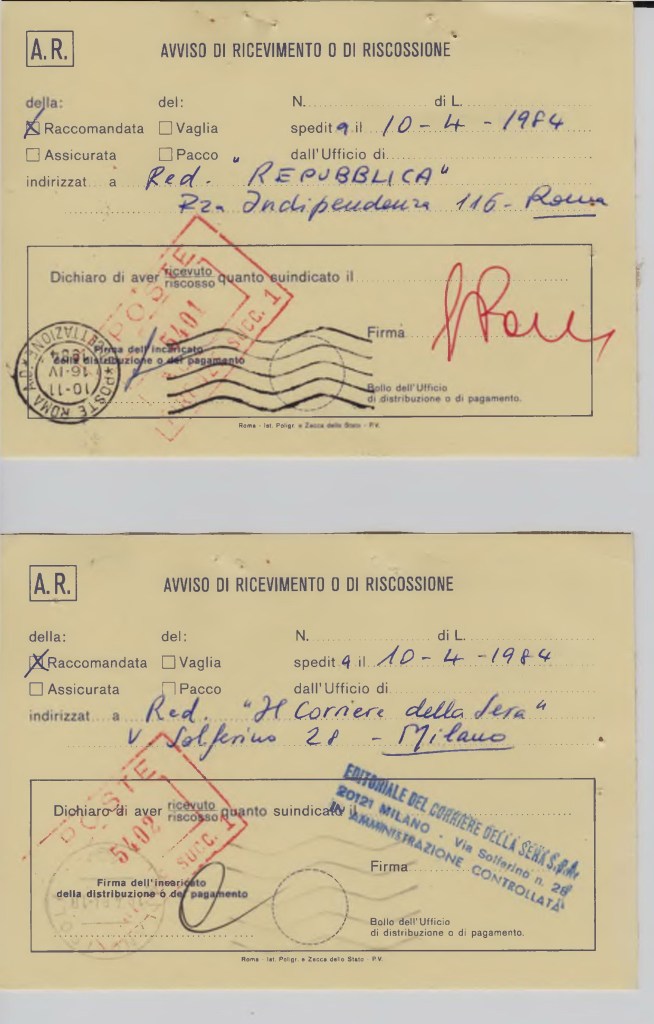 A.R. AVVISO DI RICEVIMENTO O DI RISCOSSIONE
della: del: N. di L.
Raccomandata Vaglia spedita il 10-4-1984
Assicurata Pacco dall'Ufficio di
indirizzat a Red. "REPUBBLICA"
Pza Indipendenza 116 - Roma
Dichiaro di aver ricevuto riscosso quanto suindicato il
POSTE
5401
SUCC. 1
Firma
Firma dell'incaricato
della distribuzione o del pagamento
POSTE ROMA
10-11
16-IV
1984
Bollo dell'Ufficio
di distribuzione o di pagamento.
Roma - Ist. Poligr. e Zecca dello Stato - P.V.
A.R. AVVISO DI RICEVIMENTO O DI RISCOSSIONE
della: del: N. di L.
Raccomandata Vaglia spedita il 10-4-1984
Assicurata Pacco dall'Ufficio di
indirizzat a Red. "Il Corriere della Sera"
V Solferino 28 - Milano
Dichiaro di aver ricevuto riscosso quanto suindicato il
POSTE
5402
SUCC. 1
EDITORIALE DEL CORRIERE DELLA SERA S.p.A.
20121 MILANO - Via Solferino n. 28
IN AMMINISTRAZIONE CONTROLLATA
Firma
Firma dell'incaricato
della distribuzione o del pagamento
Bollo dell'Ufficio
di distribuzione o di pagamento.
Roma - Ist. Poligr. e Zecca dello Stato - P.V.